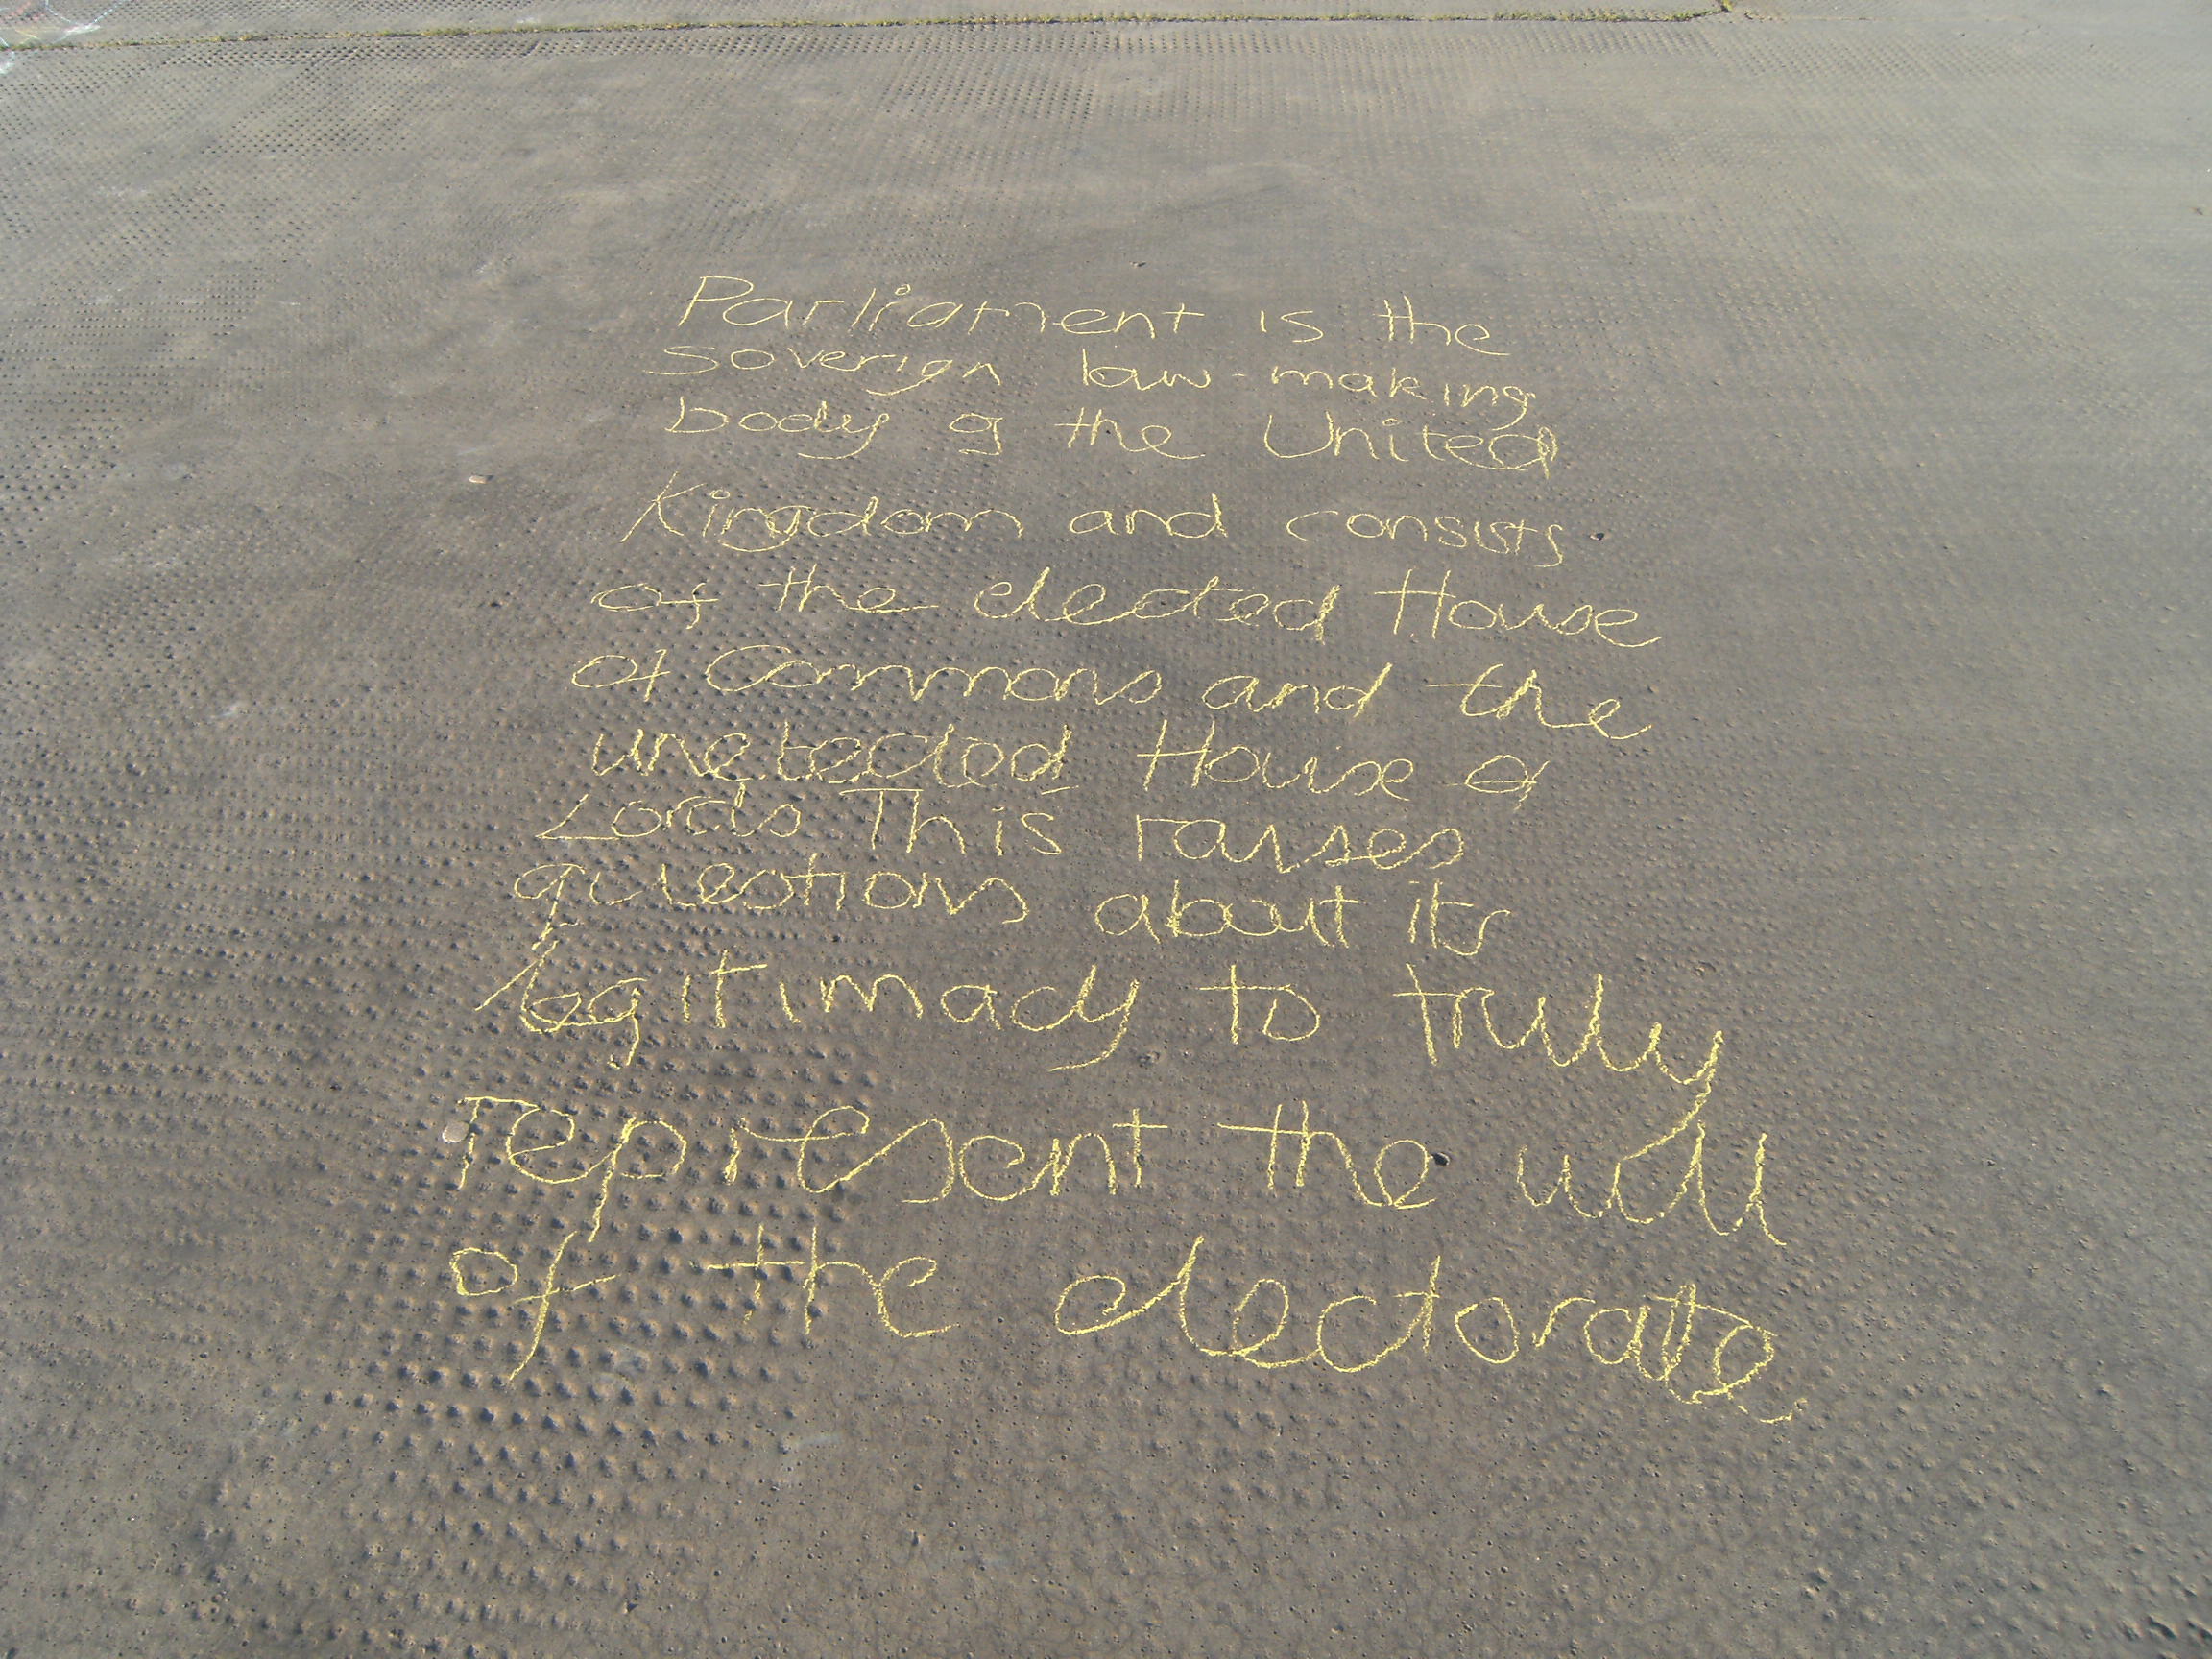 Parliament is the
soverign law-making
body of the United
Kingdom and consists
of the elected House
of Commons and the
unelected House of
Lords This raises
questions about its
legitimacy to truly
represent the will
of the electorate